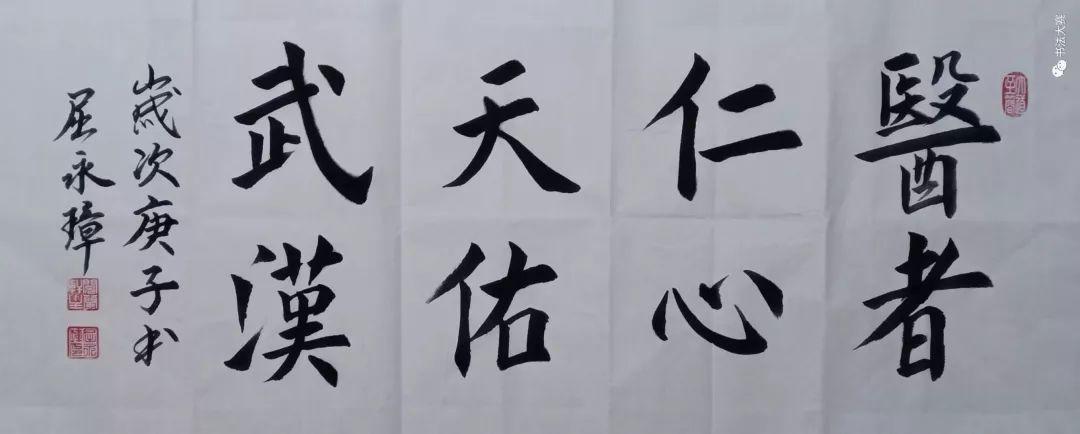 醫者
仁心
天佑
武漢
歲次庚子
屈永璋
书法大赛